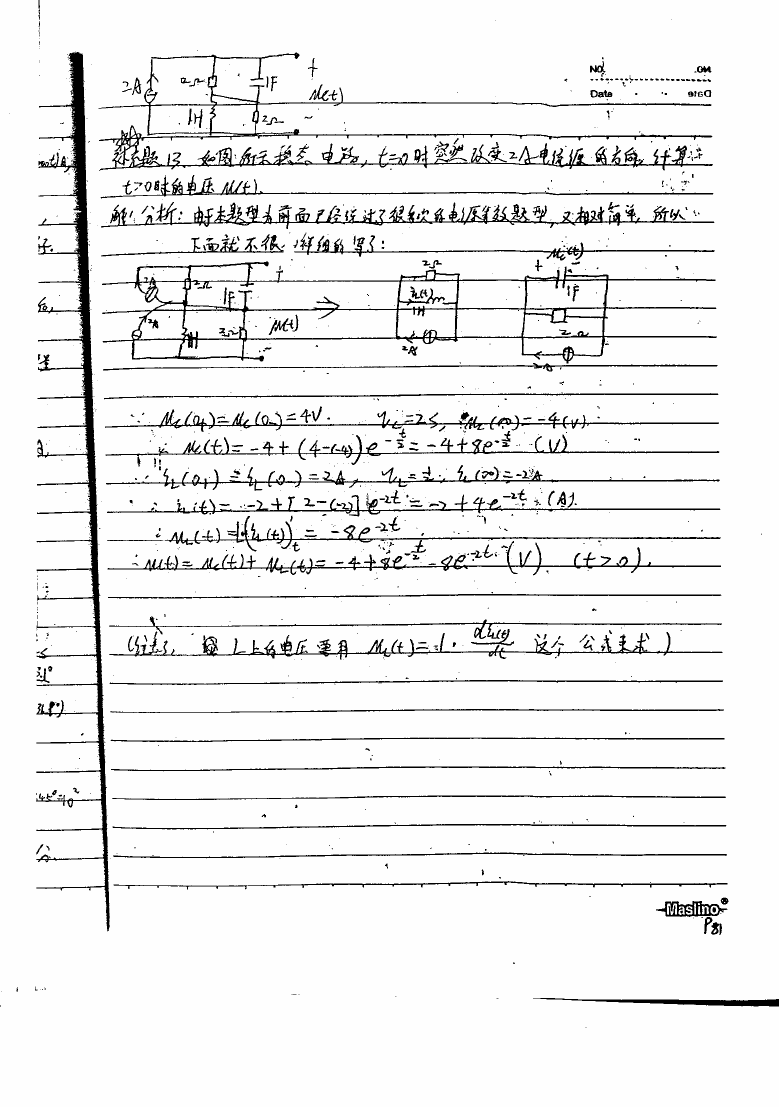 NO.
Date
2A 2Ω 1F + u(t)
1H 2Ω -
补充题13、如图所示稳态电路,t=0时突然改变2A电流源的方向,计算
t>0时的电压u(t).
解:分析:由于本题型为前面已经练过了很多次的电源等效题型,又相对简单,所以
下面就不很详细的写了:
2A 2Ω 1F + 2A 1H 2Ω u(t) -
2Ω iL(t) 1H 2A
+ uc(t) - 1F 2Ω 2A
∵ uc(0+)=uc(0-)=4V. τc=2S, uc(∞)=-4(V).
∴ uc(t)=-4+(4-(-4))e^{-t/2}=-4+8e^{-t/2} (V)
∵ iL(0+)=iL(0-)=2A, τL=½, iL(∞)=-2A
∴ iL(t)=-2+[2-(-2)]e^{-2t}=-2+4e^{-2t} (A).
∴ uL(t)=L(iL(t))'t=-8e^{-2t}
∴ u(t)=uc(t)+uL(t)=-4+8e^{-t/2}-8e^{-2t}(V) (t>0).
L上的电压要用 uL(t)=L·diL(t)/dt 这个公式来求.)
Maslino®
P81